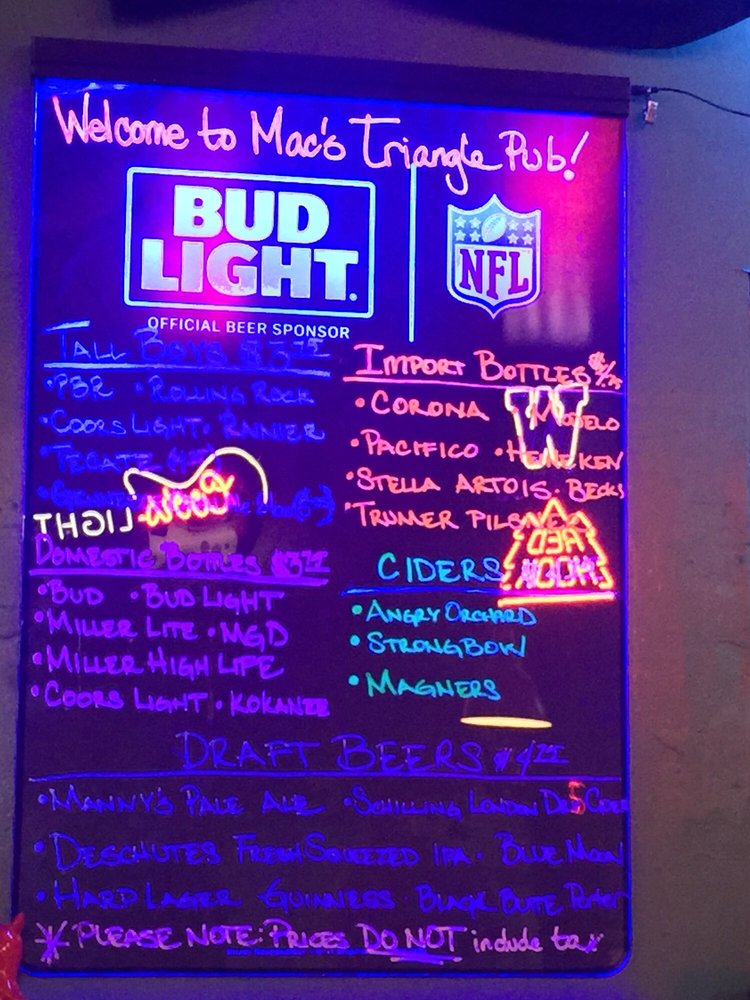 Welcome to Mac's Triangle Pub!
BUD
LIGHT.
NFL
OFFICIAL BEER SPONSOR
TALL BOYS
• PBR • ROLLING ROCK
• COORS LIGHT • RAINIER
• TECATE
LIGHT
DOMESTIC BOTTLES
• BUD • BUD LIGHT
• MILLER LITE • MGD
• MILLER HIGH LIFE
• COORS LIGHT • KOKANEE
IMPORT BOTTLES
• CORONA MODELO
W
• PACIFICO • HEINEKEN
• STELLA ARTOIS • BECKS
• TRUMER PILSNER
RED
HOOK
CIDERS
• ANGRY ORCHARD
• STRONGBOW
• MAGNERS
DRAFT BEERS
• MANNY'S PALE ALE • SCHILLING LONDON
• DESCHUTES FRESH SQUEEZED IPA • BLUE MOON
• HARD LAGER GUINNESS BLACK BUTE Porter
* PLEASE NOTE: PRICES DO NOT include tax